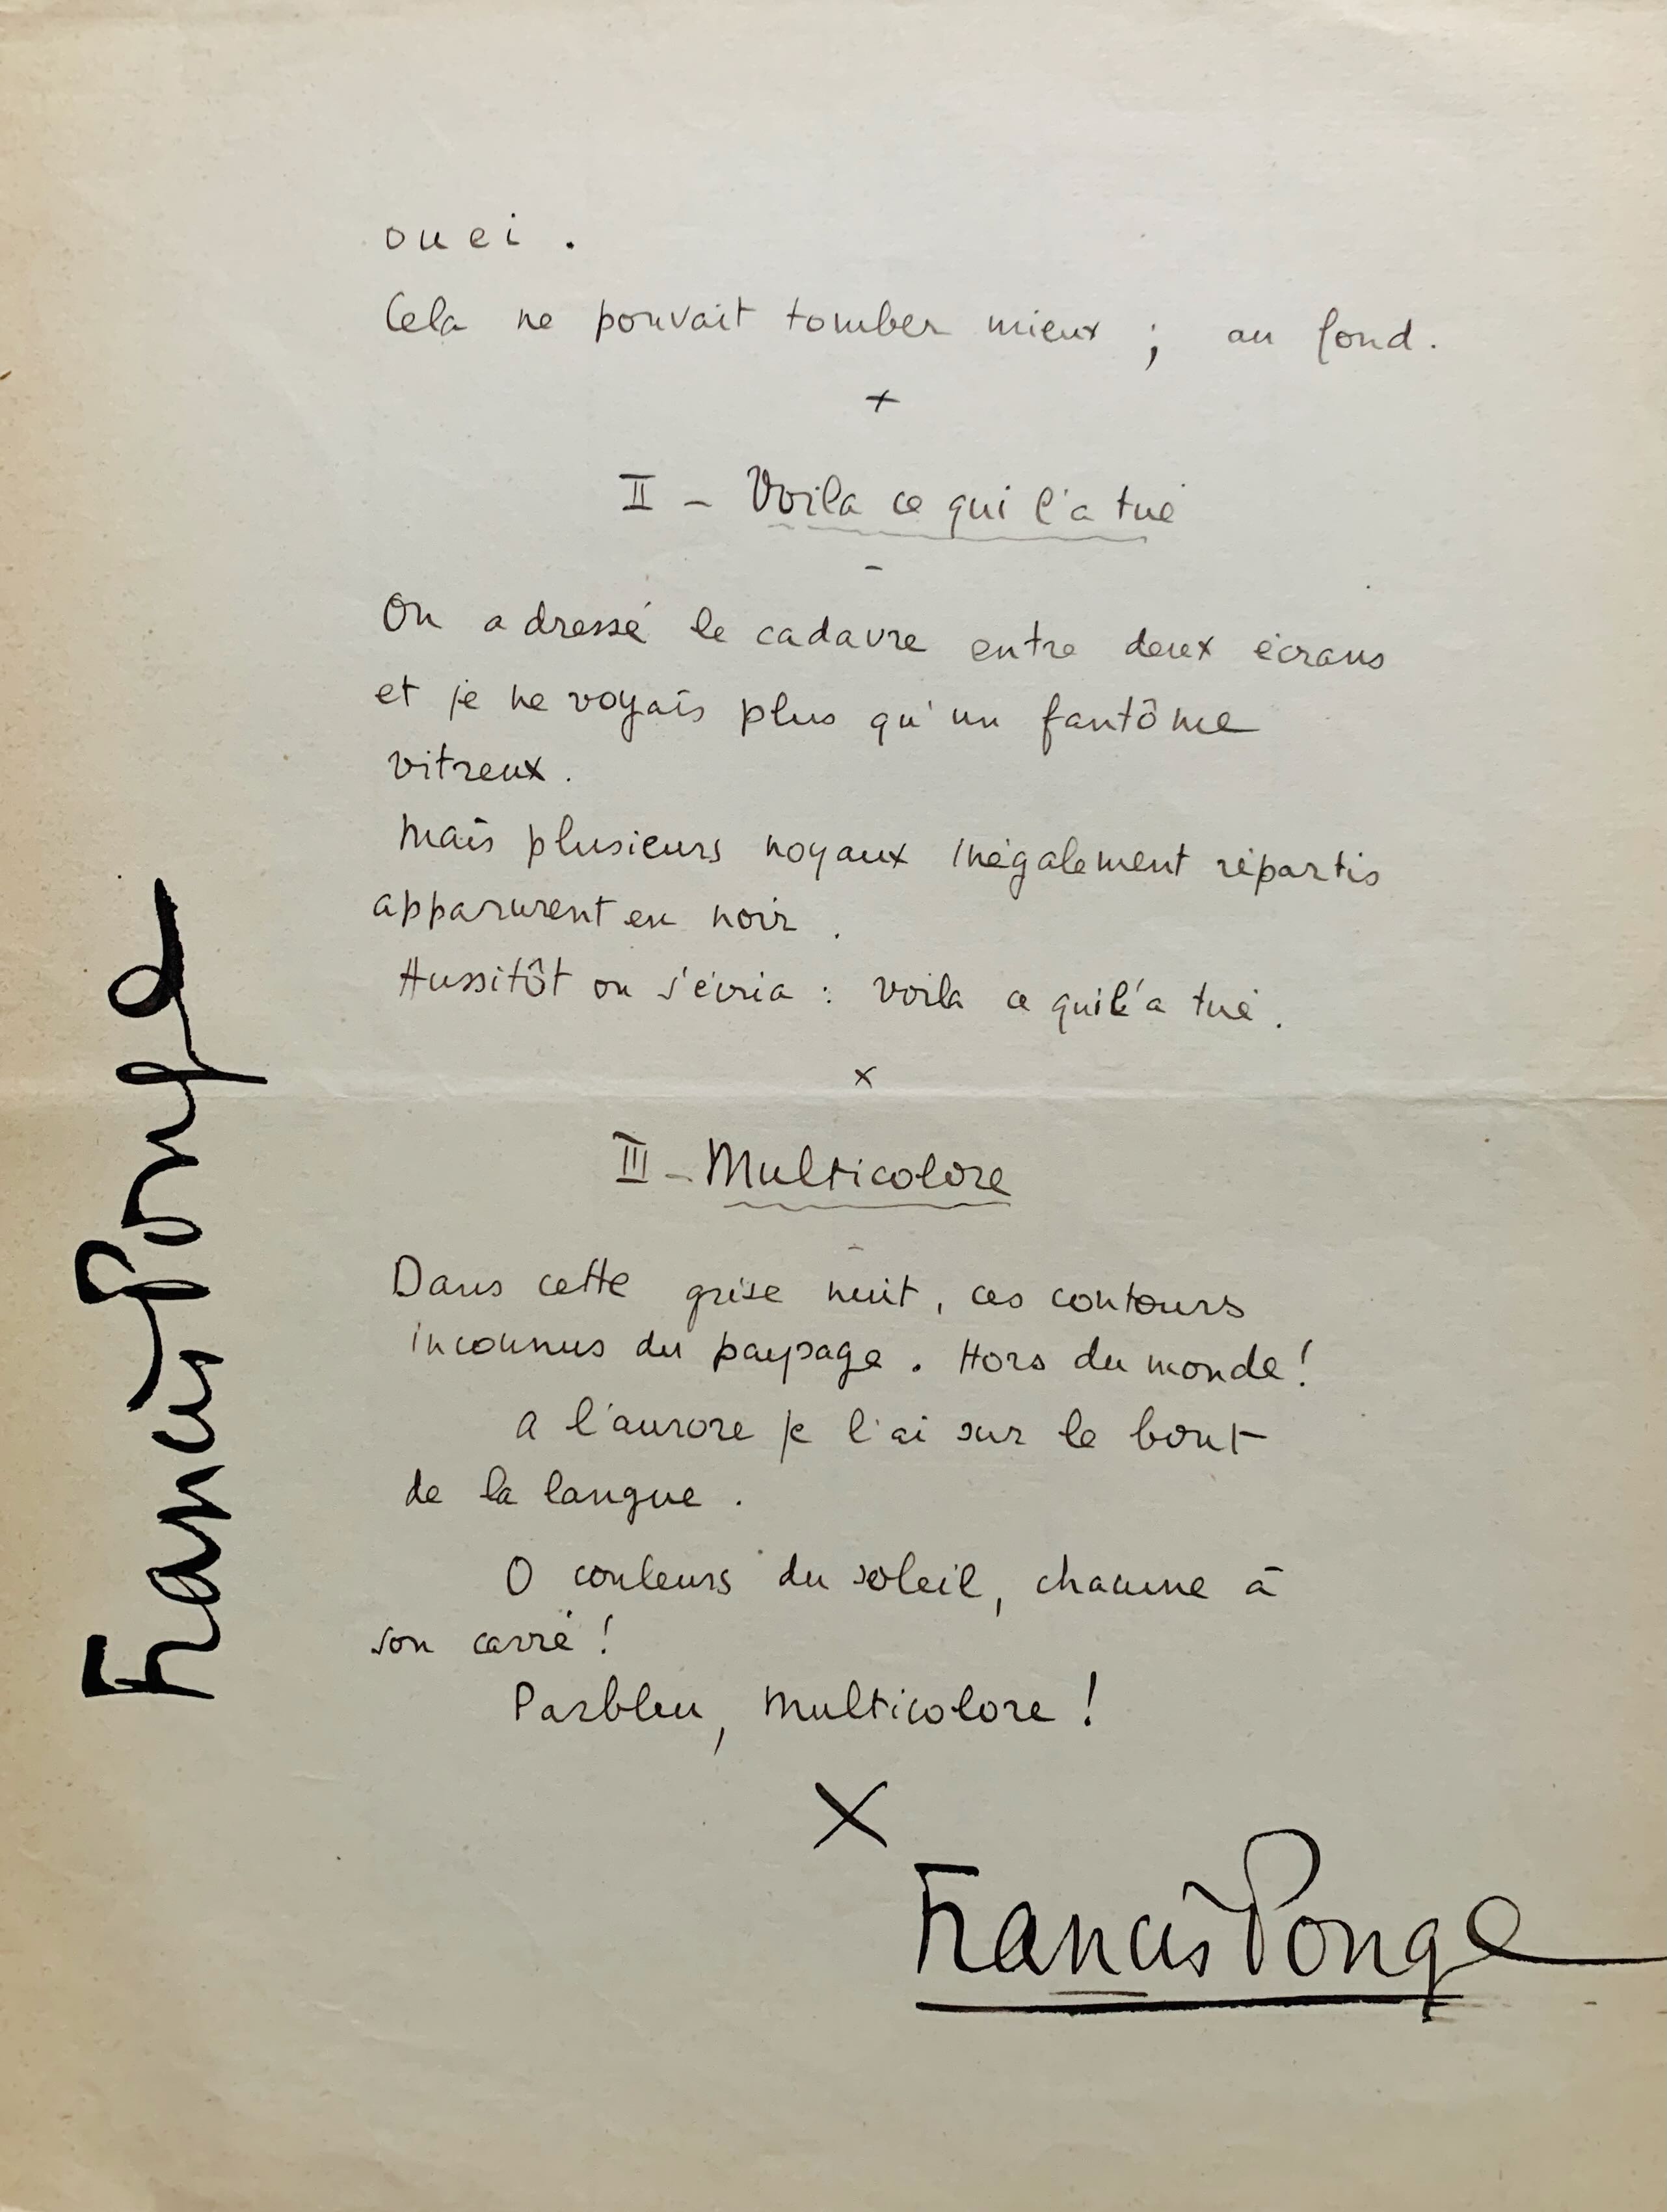 ouei.
Cela ne pouvait tomber mieux ; au fond.
+
II – Voila ce qui l'a tué
–
On a dressé le cadavre entre deux écrans
et je ne voyais plus qu'un fantôme
vitreux.
Mais plusieurs noyaux inégalement répartis
apparurent en noir.
Aussitôt on s'écria : voila ce qui l'a tué.
x
III – Multicolore
–
Dans cette grise nuit, ces contours
inconnus du paysage. Hors du monde !
A l'aurore je l'ai sur le bout
de la langue.
O couleurs du soleil, chacune à
son carré !
Parbleu, Multicolore !
X
Francis Ponge
Francis Ponge